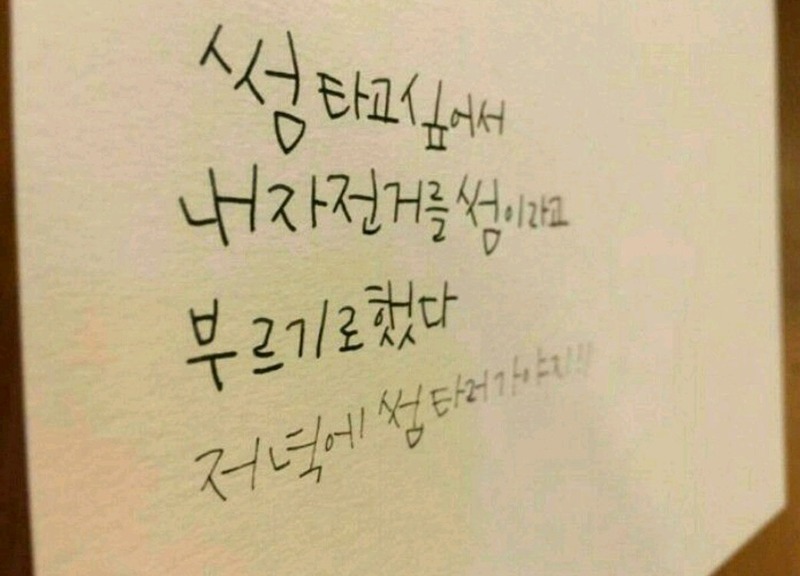 썸 타고싶어서
내 자전거를 썸이라고
부르기로했다
저녁에 썸타러가야지!!